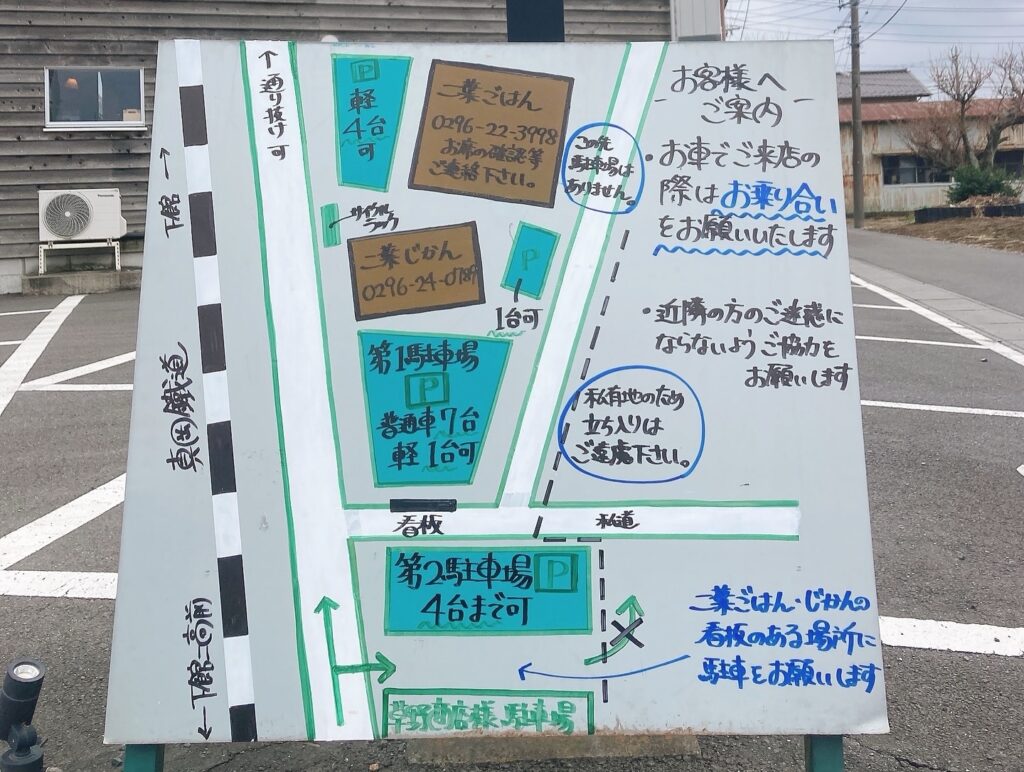 ↑通り抜け可
P
軽
4台
可
二葉ごはん
0296-22-3998
お席の確認等
ご連絡下さい。
この先
駐車場は
ありません。
お客様へ
ご案内
・お車でご来店の
際はお乗り合い
をお願いいたします
・近隣の方のご迷惑に
ならないようご協力を
お願いします
下館→
サイクル
ラック
二葉じかん
0296-24-0789
P
1台可
第1駐車場
P
普通車7台
軽1台可
真岡鐵道
私有地のため
立ち入りは
ご遠慮下さい。
看板
私道
第2駐車場 P
4台まで可
二葉ごはん・じかんの
看板のある場所に
駐車をお願いします
←下館二高前
草野商店様駐車場
Panasonic